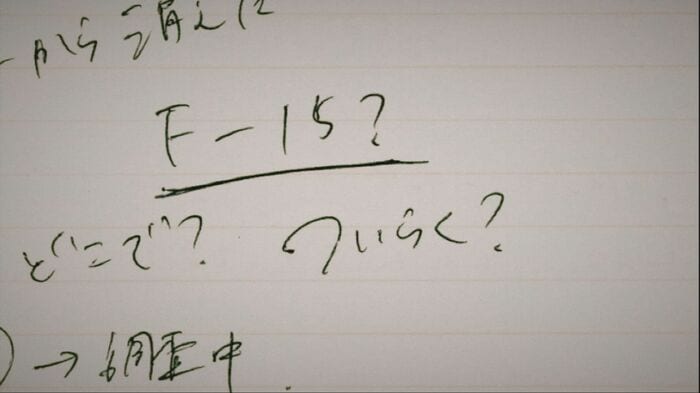 ーから消えた
F-15?
どこで? ついらく?
→調査中